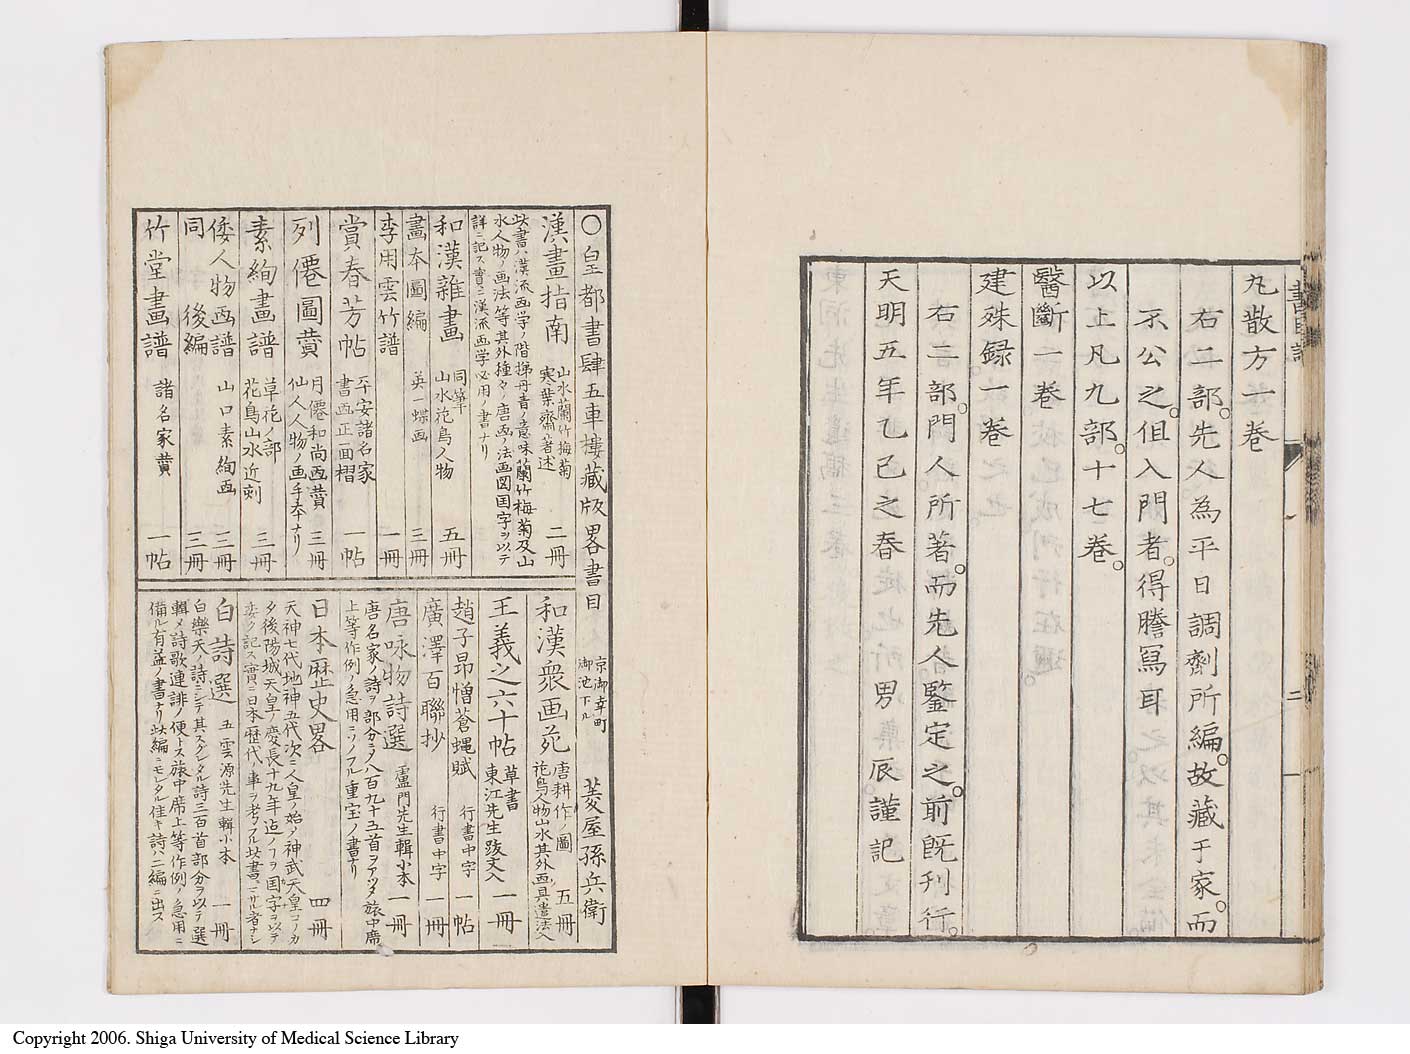 書目記
二
丸散方一卷
右二部。先人為平日調劑所編。故藏于家。而
不公之。但入門者。得謄寫耳
以上凡九部。十七卷。
醫斷一卷
建殊録一卷
右二部門人所著。而先人鑒定之。前既刊行。
天明五年乙巳之春 男 辰謹記
〇皇都書肆五車樓藏版畧書目 京御幸町御池下ル 菱屋孫兵衛
漢畫指南 山水蘭竹梅菊 寒葉齋著述 二冊
此書ハ漢流画学ノ階梯丹青ノ意味蘭竹梅菊及山
水人物ノ画法等其外種々ノ唐画ノ法画図国字ヲ以テ
詳ニ記ス實ニ漢流画学必用ノ書ナリ
和漢雜畫 同筆 山水花鳥人物 五冊
畫本圖編 英一蝶画 三冊
李用雲竹譜 一冊
賞春芳帖 平安諸名家 書画正面摺 一帖
列僊圖賛 月僊和尚画賛 仙人人物ノ画手本ナリ 三冊
素絢畫譜 草花ノ部 花鳥山水近刻 三冊
倭人物画譜 山口素絢画 三冊
同 後編 三冊
竹堂畫譜 諸名家賛 一帖
和漢衆画苑 唐耕作ノ圖 花鳥人物山水其外画具遣法入 五冊
王義之六十帖 草書 東江先生跋文入 一冊
趙子昻憎蒼蝿賦 行書中字 一帖
廣澤百聯抄 行書中字 一冊
唐咏物詩選 盧門先生輯小本 一冊
唐名家ノ詩ヲ部分ニシ八百九十五首ヲアツメ旅中席
上等作例ノ急用ニソノフル重宝ノ書ナリ
日本歴史畧 四冊
天神七代地神五代次ニ人皇ノ始ノ神武天皇ヨノカ
タ後陽城天皇ノ慶長十九年迄ノフヲ国字ヲ以テ
委ク記ス實ニ日本歴代ノ事ヲ考フル此書ニシル者ナシ
白詩選 五雲源先生輯小本 一冊
白樂天ノ詩ニシテ其スグレタル詩三百首部分ヲ以テ選
輯メ詩歌連誹ノ便トス旅中席上等作例ノ急用ニ
備ル有益ノ書ナリ此編ニモレタル佳キ詩ハ二編ニ出ス
Copyright 2006. Shiga University of Medical Science Library